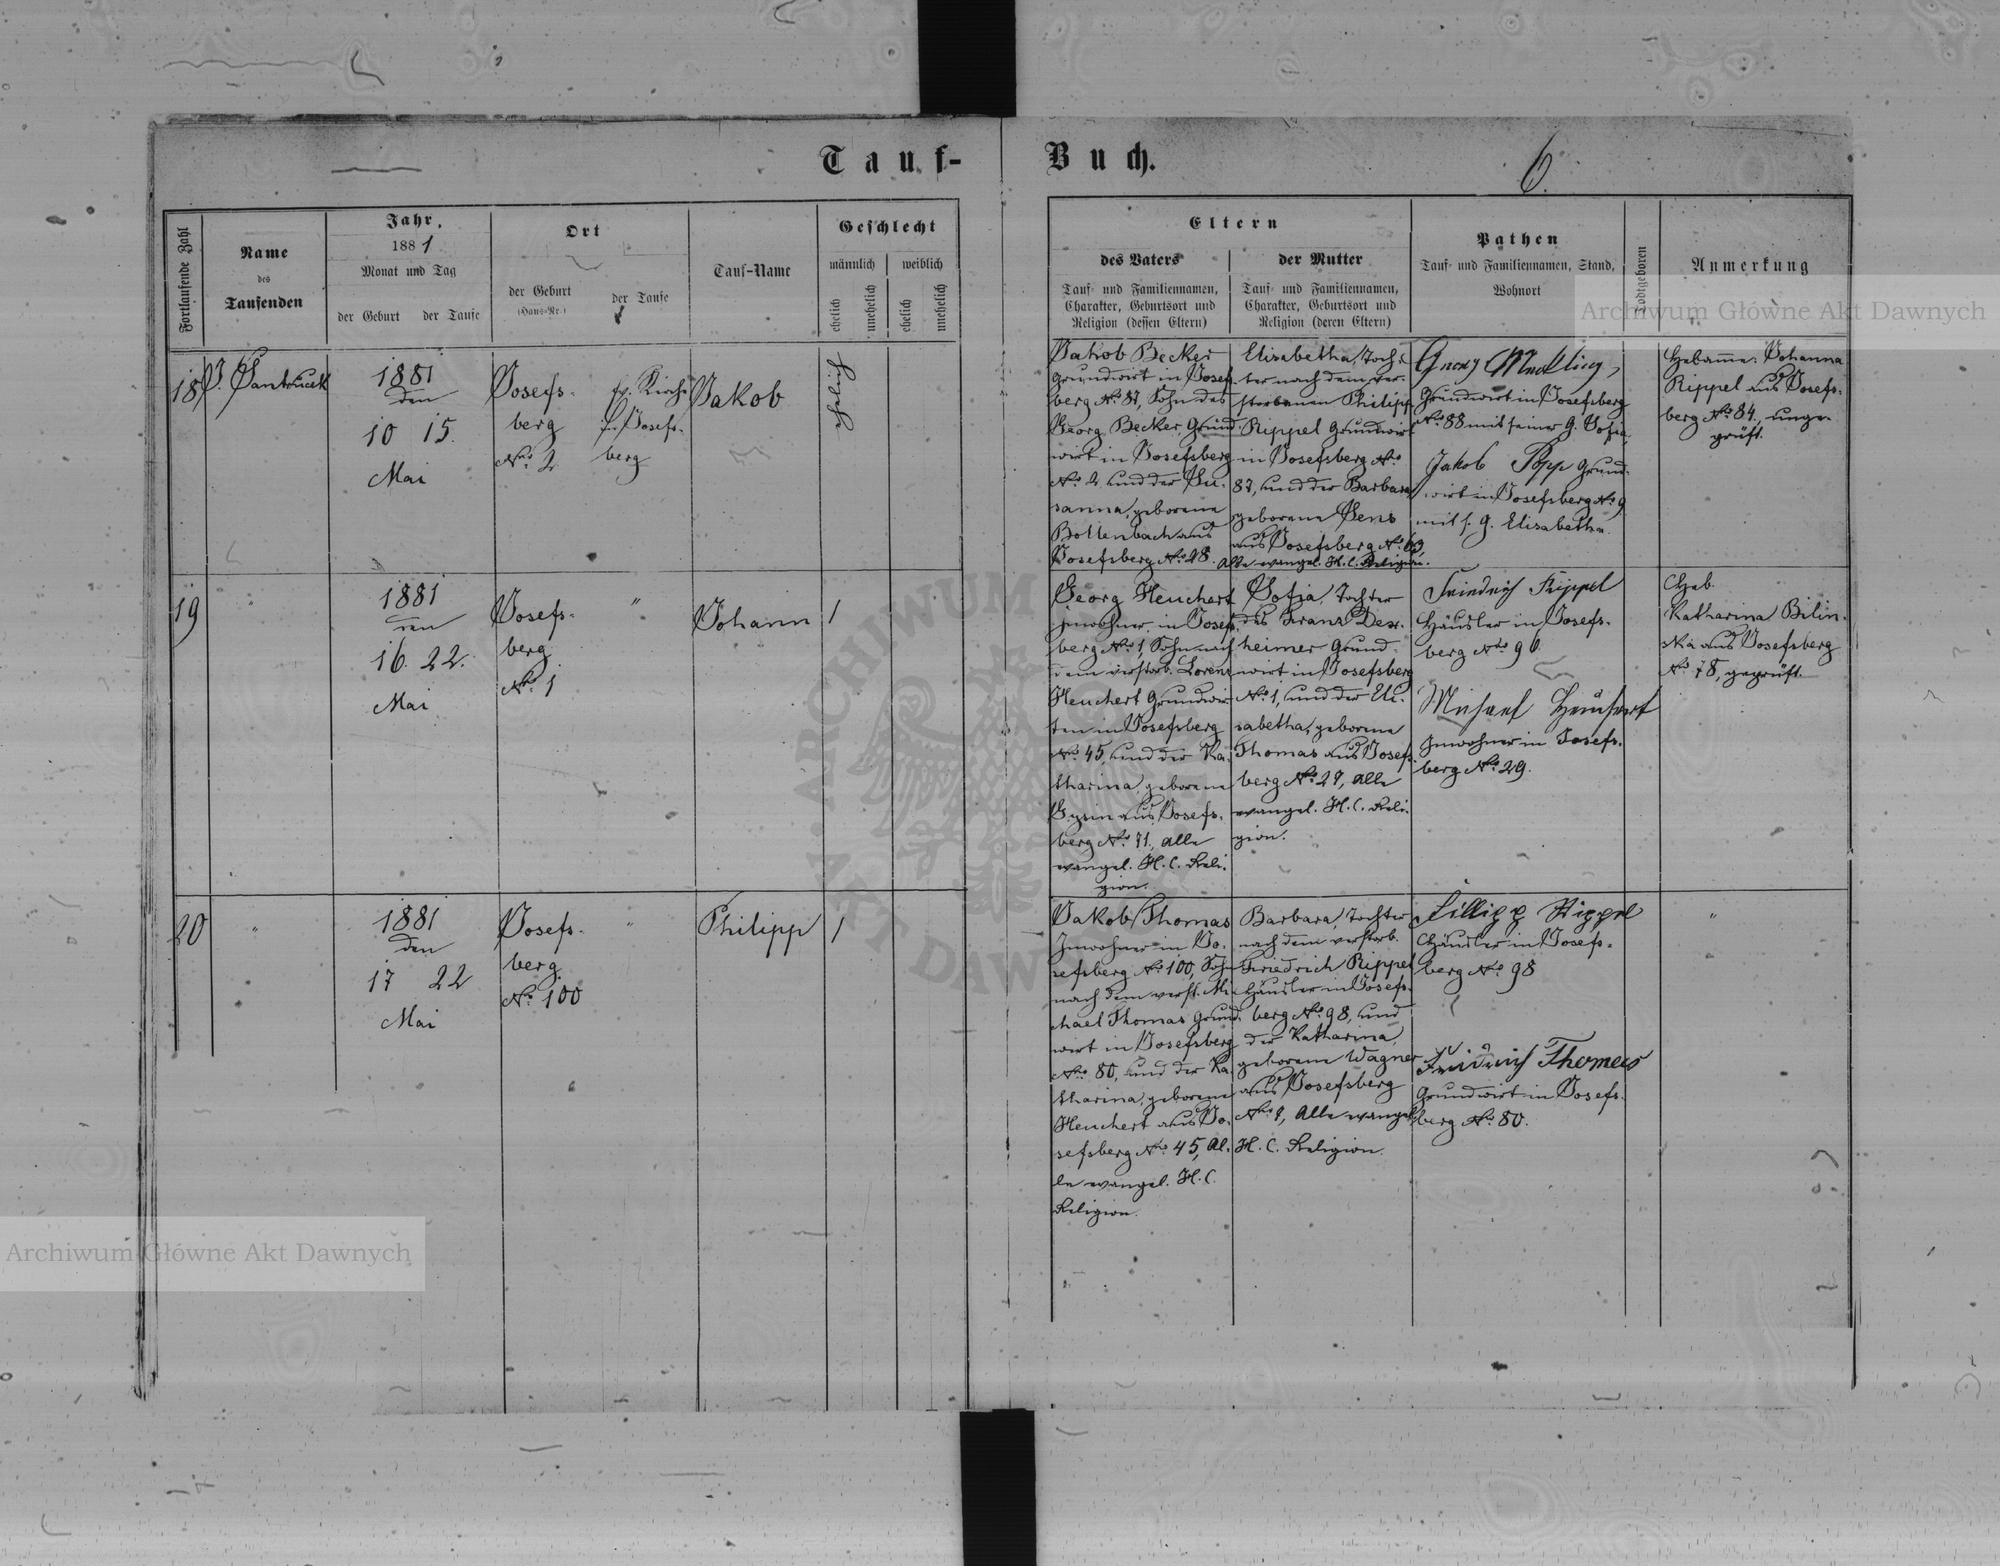 Tauf-Buch.
6.
Fortlaufende Zahl
Name
des
Taufenden
Jahr.
1881
Monat und Tag
der Geburt der Taufe
Ort
der Geburt
(Haus-Nr.)
der Taufe
Tauf-Name
Geschlecht
männlich weiblich
ehelich
unehelich
ehelich
unehelich
Eltern
des Vaters
Tauf- und Familiennamen,
Charakter, Geburtsort und
Religion (dessen Eltern)
der Mutter
Tauf- und Familiennamen,
Charakter, Geburtsort und
Religion (deren Eltern)
Pathen
Tauf- und Familiennamen, Stand,
Wohnort
Todtgeboren
Anmerkung
18
J. Santrucek
1881
den
10 15.
Mai
Josefs-
berg
No. 2
ev. Kirche
in Josefs-
berg
Jakob
ehelich
Jakob Becker
Grundwirt in Josefs-
berg No. 87, Sohn des
Georg Becker Grund-
wirt in Josefsberg
No. 2 und der Su-
sanna, geborene
Bollenbach aus
Josefsberg No. 28.
Elisabetha, Toch-
ter nach dem ver-
storbenen Philipp
Rippel Grundwirt
in Josefsberg No.
87, und der Barbara
geborene Sens
aus Josefsberg No. 63,
Alle evangel. H. C. Religion.
Georg Medling,
Grundwirt in Josefsberg
No. 88 mit seiner G. Sofia.
Jakob Popp Grund-
wirt in Josefsberg No. 9
mit s. G. Elisabetha.
Hebamme: Johanna
Rippel aus Josefs-
berg No. 84, unge-
prüft.
19
"
1881
den
16. 22.
Mai
Josefs-
berg
No. 1
"
Johann
1
Georg Heuchert
Inwohner in Josefs-
berg No. 1, Sohn nach
dem verstorb. Lorenz
Heuchert Grundwir-
ten in Josefsberg
No. 45, und der Ka-
tharina, geborene
aus Josefs-
berg No. 71, alle
evangel. H. C. Reli-
gion.
Sofia, Tochter
des Franz Dex-
heimer Grund-
wirt in Josefsberg
No. 1, und der Eli-
sabetha, geborene
Thomas aus Josefs-
berg No. 27, alle
evangel. H. C. Reli-
gion.
Friedrich Rippel
Häusler in Josefs-
berg No. 96
Michael Heuchert
Inwohner in Josefs-
berg No. 29.
Heb.
Katharina Bilin-
ska aus Josefsberg
No. 78, geprüft.
20
"
1881
den
17 22
Mai
Josefs-
berg
No. 100
"
Philipp
1
Jakob Thomas
Inwohner in Jo-
sefsberg No. 100, Sohn
nach dem verst. Mi-
chael Thomas Grund-
wirt in Josefsberg
No. 80, und der Ka-
tharina, geborene
Heuchert aus Jo-
sefsberg No. 45, Al-
le evangel. H. C.
Religion.
Barbara, Tochter
nach dem verstorb.
Friedrich Rippel
Häusler in Josefs-
berg No. 98, und
der Katharina,
geborene Wagner
aus Josefsberg
No. 8, Alle evangel.
H. C. Religion.
Fillipp Rippel
Häusler in Josefs-
berg No. 98
Friedrich Thomas
Grundwirt in Josefs-
berg No. 80.
"
Archiwum Główne Akt Dawnych
Archiwum Główne Akt Dawnych